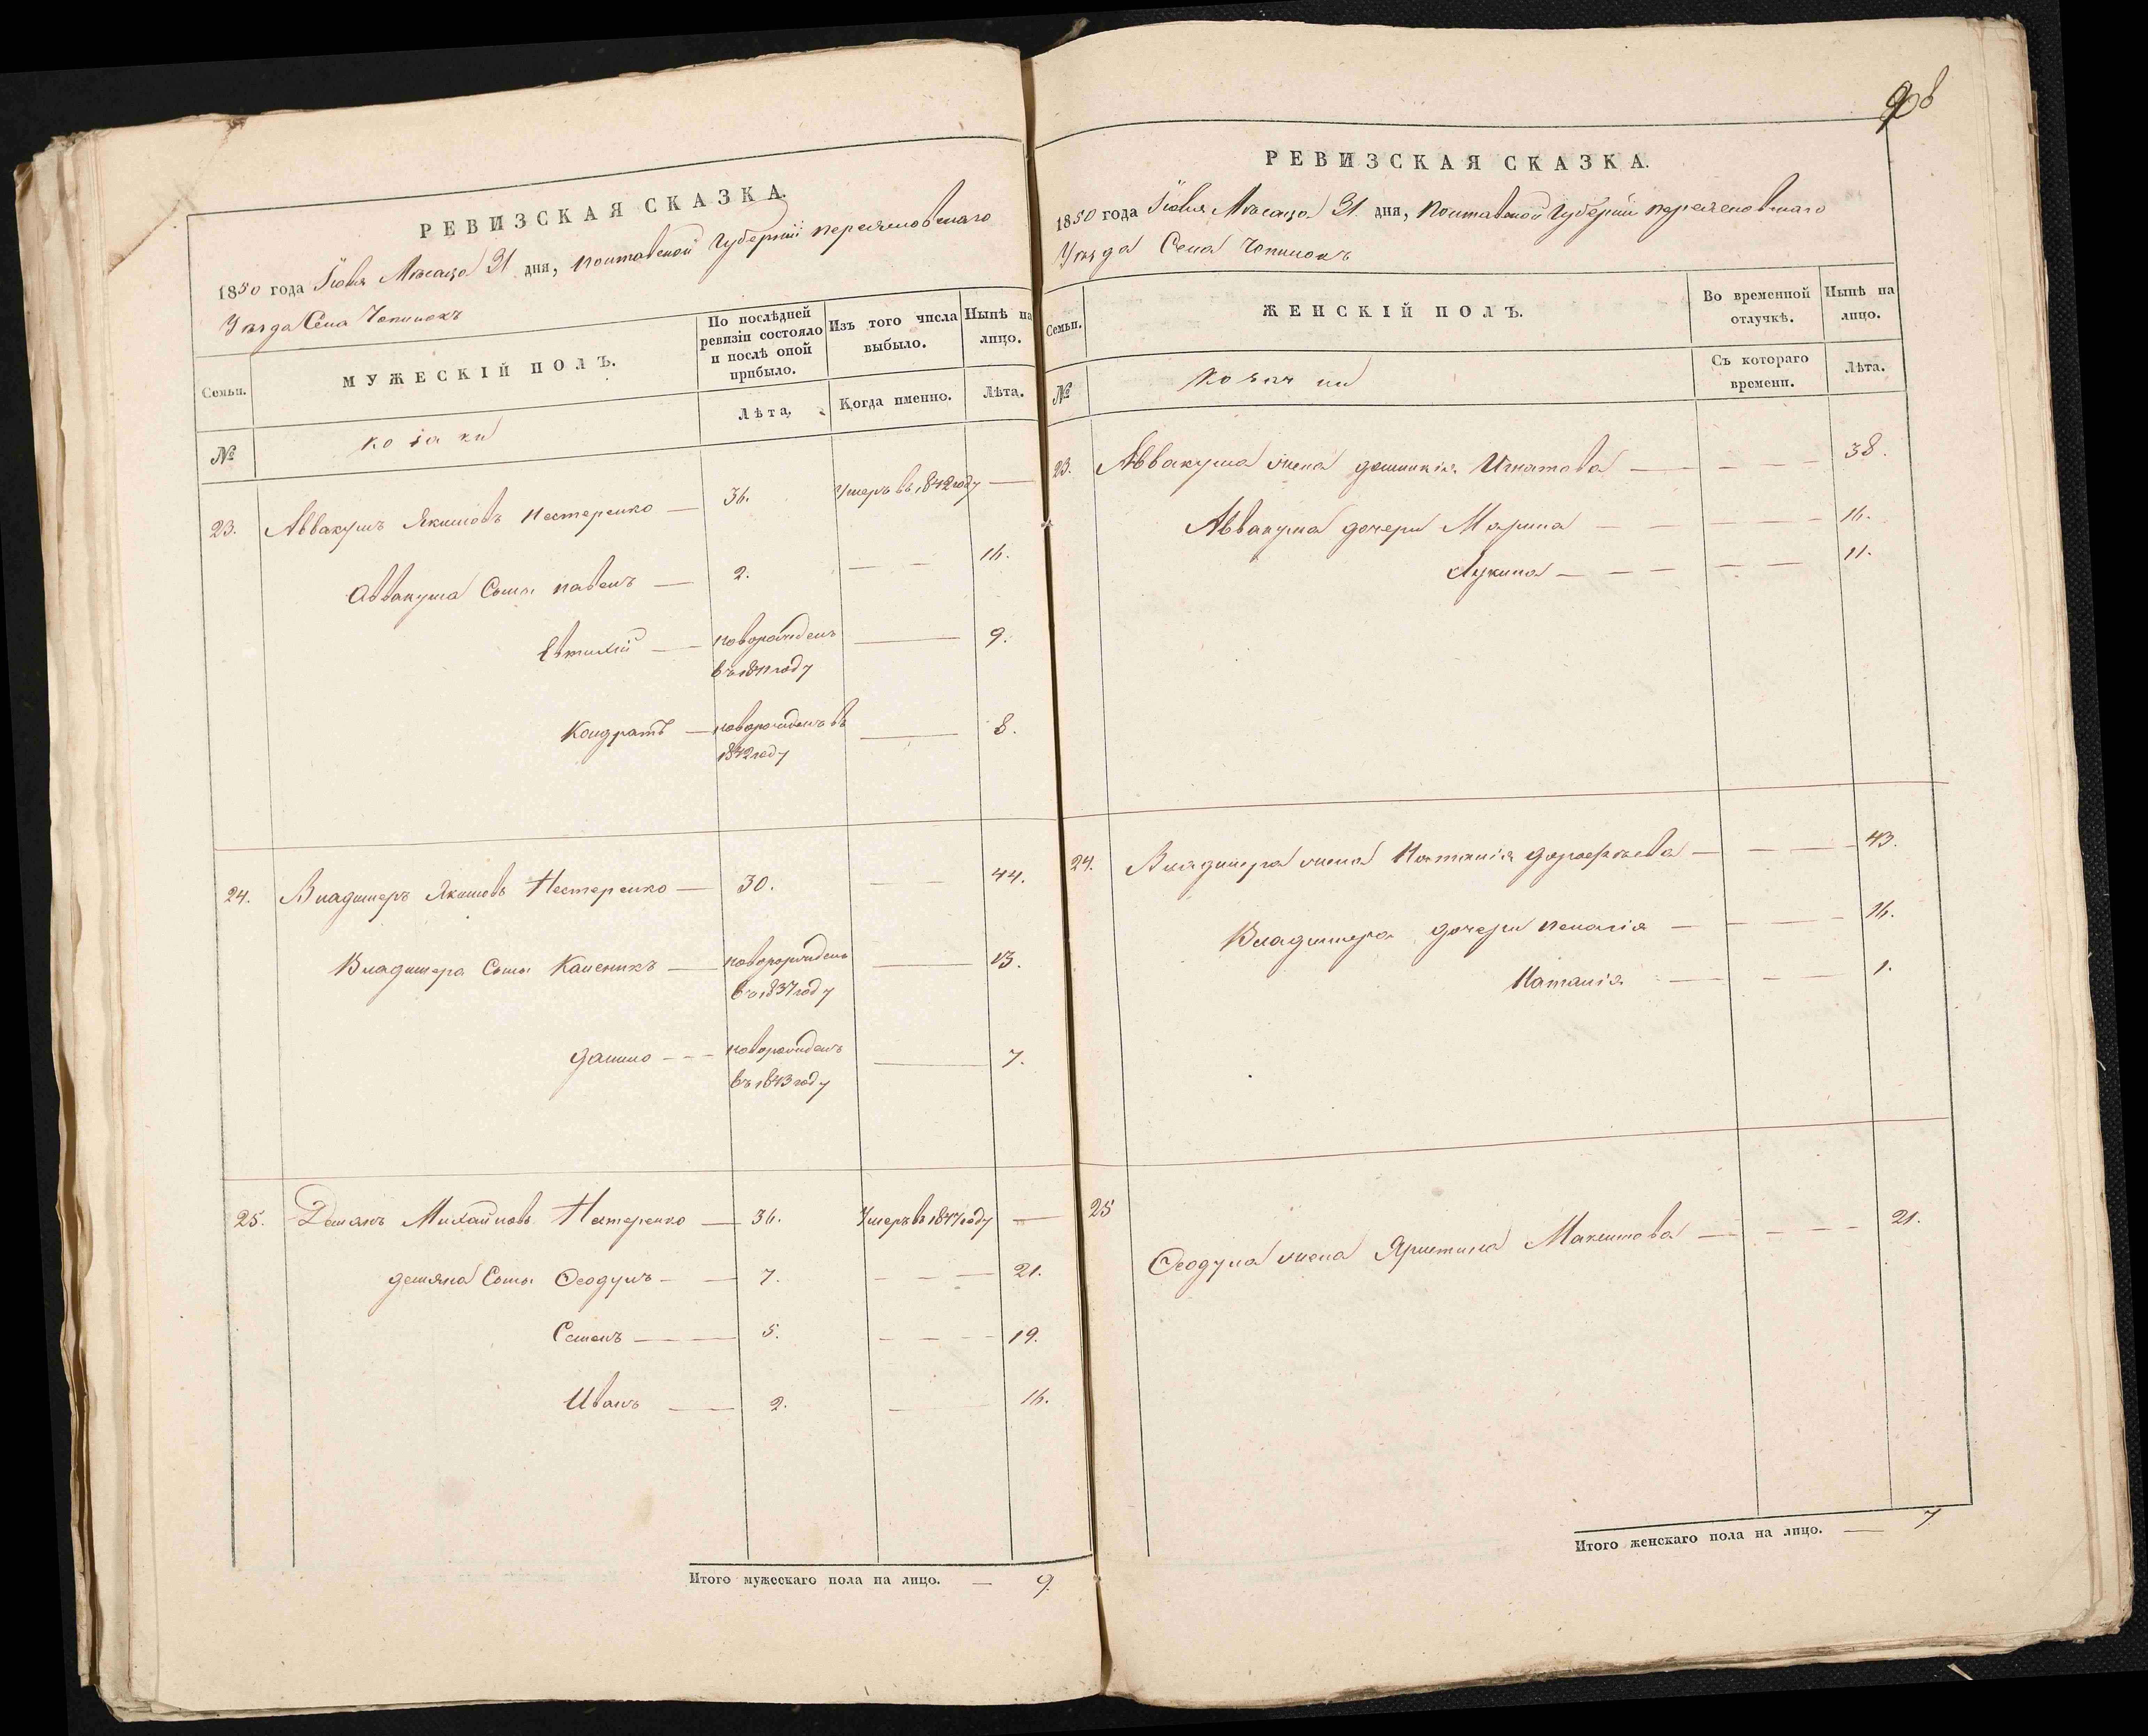 РЕВИЗСКАЯ СКАЗКА.
1850 года Іюля Мѣсяца 31 дня, Полтавской Губерніи переяславскаго
Уѣзда Села Чопилокъ
Семьи.
МУЖЕСКІЙ ПОЛЪ.
По послѣдней
ревизіи состояло
и послѣ оной
прибыло.
Изъ того числа
выбыло.
Нынѣ на
лицо.
№
козаки
Лѣта.
Когда именно.
Лѣта.
23. Аввакумъ Якимовъ Нестеренко — 36. Умеръ въ 1842 году —
Аввакума Сыны павелъ — 2. — — 16.
Евтихій — новорожденъ — 9.
въ 1841 году
Кондратъ — новорожденъ въ — 8.
1842 году
24. Владимеръ Якимовъ Нестеренко — 30. — — 44.
Владимера Сыны Каленикъ — новорожденъ — 13.
въ 1837 году
данило — — — новорожденъ — 7.
въ 1843 году
25. Демянъ Михайловъ Нестеренко — 36. Умеръ въ 1847 году —
демяна Сыны Ѳеодулъ — — 7. — — — 21.
Семенъ — — — 5. — — — 19.
Иванъ — — 2. — 16.
Итого мужескаго пола на лицо. — 9.
РЕВИЗСКАЯ СКАЗКА.
1850 года Іюля Мѣсяца 31 дня, Полтавской Губерніи переяславскаго
Уѣзда Села Чопилокъ
Семьи.
ЖЕНСКІЙ ПОЛЪ.
Во временной
отлучкѣ.
Нынѣ на
лицо.
№
Козачки
Съ котораго
времени.
Лѣта.
23. Аввакума жена домникія Игнатова — — — — 38.
Аввакума дочери Марина — — — 16.
Лукина — — — — — 11.
24. Владимера жена Наталія дорофѣева — — — 43.
Владимера дочери пелагія — — — — 16.
Наталія — — — 1.
25
Ѳеодула жена Христина Максимова — — — — 21.
Итого женскаго пола на лицо. — 7